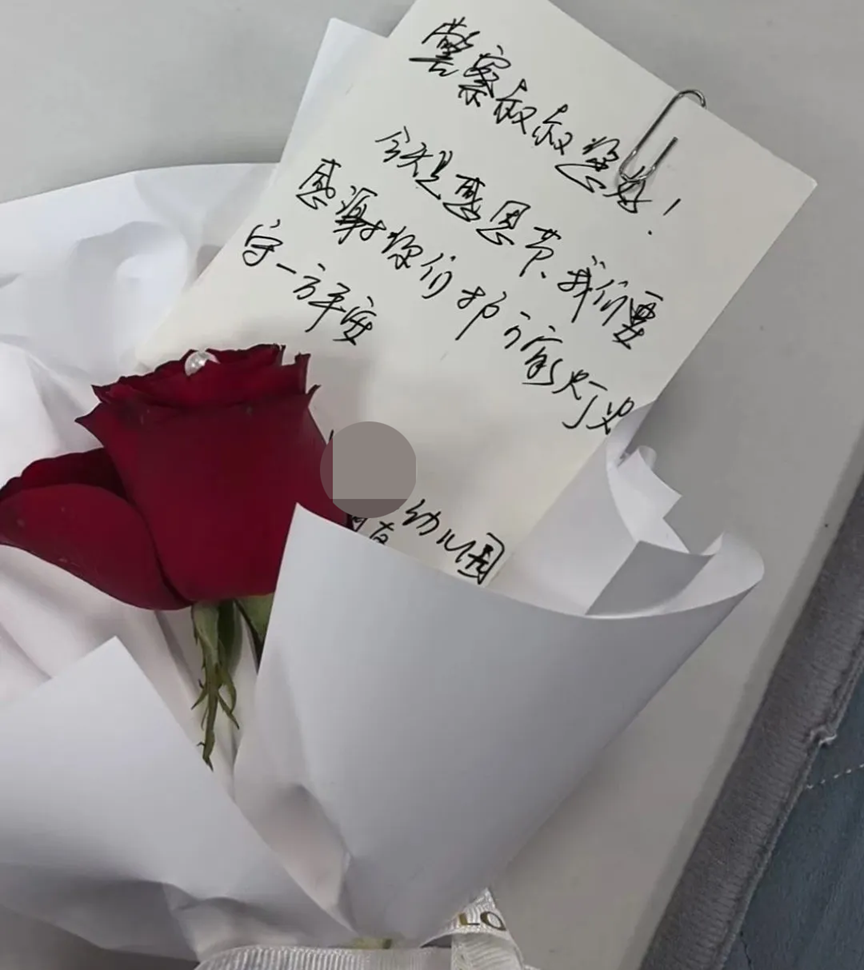 警察叔叔您好!
今天是感恩节、我们要
感谢你们护万家灯火
守一方平安
幼儿园
LO